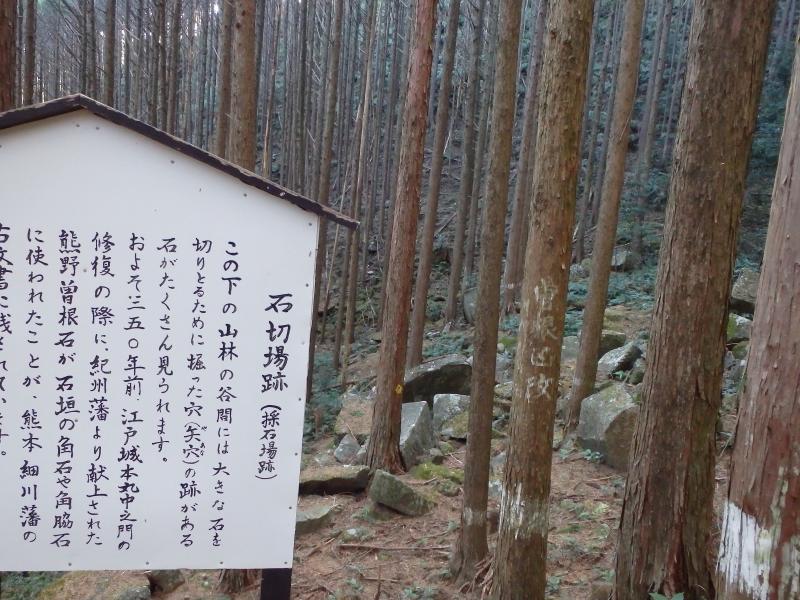 石切場跡(採石場跡)
この下の山林の谷間には大きな石を
切りとるために掘った穴(矢穴)の跡がある
石がたくさん見られます。
およそ三五〇年前 江戸城本丸中之門の
修復の際に、紀州藩より献上された
熊野曽根石が石垣の角石や角脇石
に使われたことが、熊本 細川藩の
古文書に残されています。
曽根区改